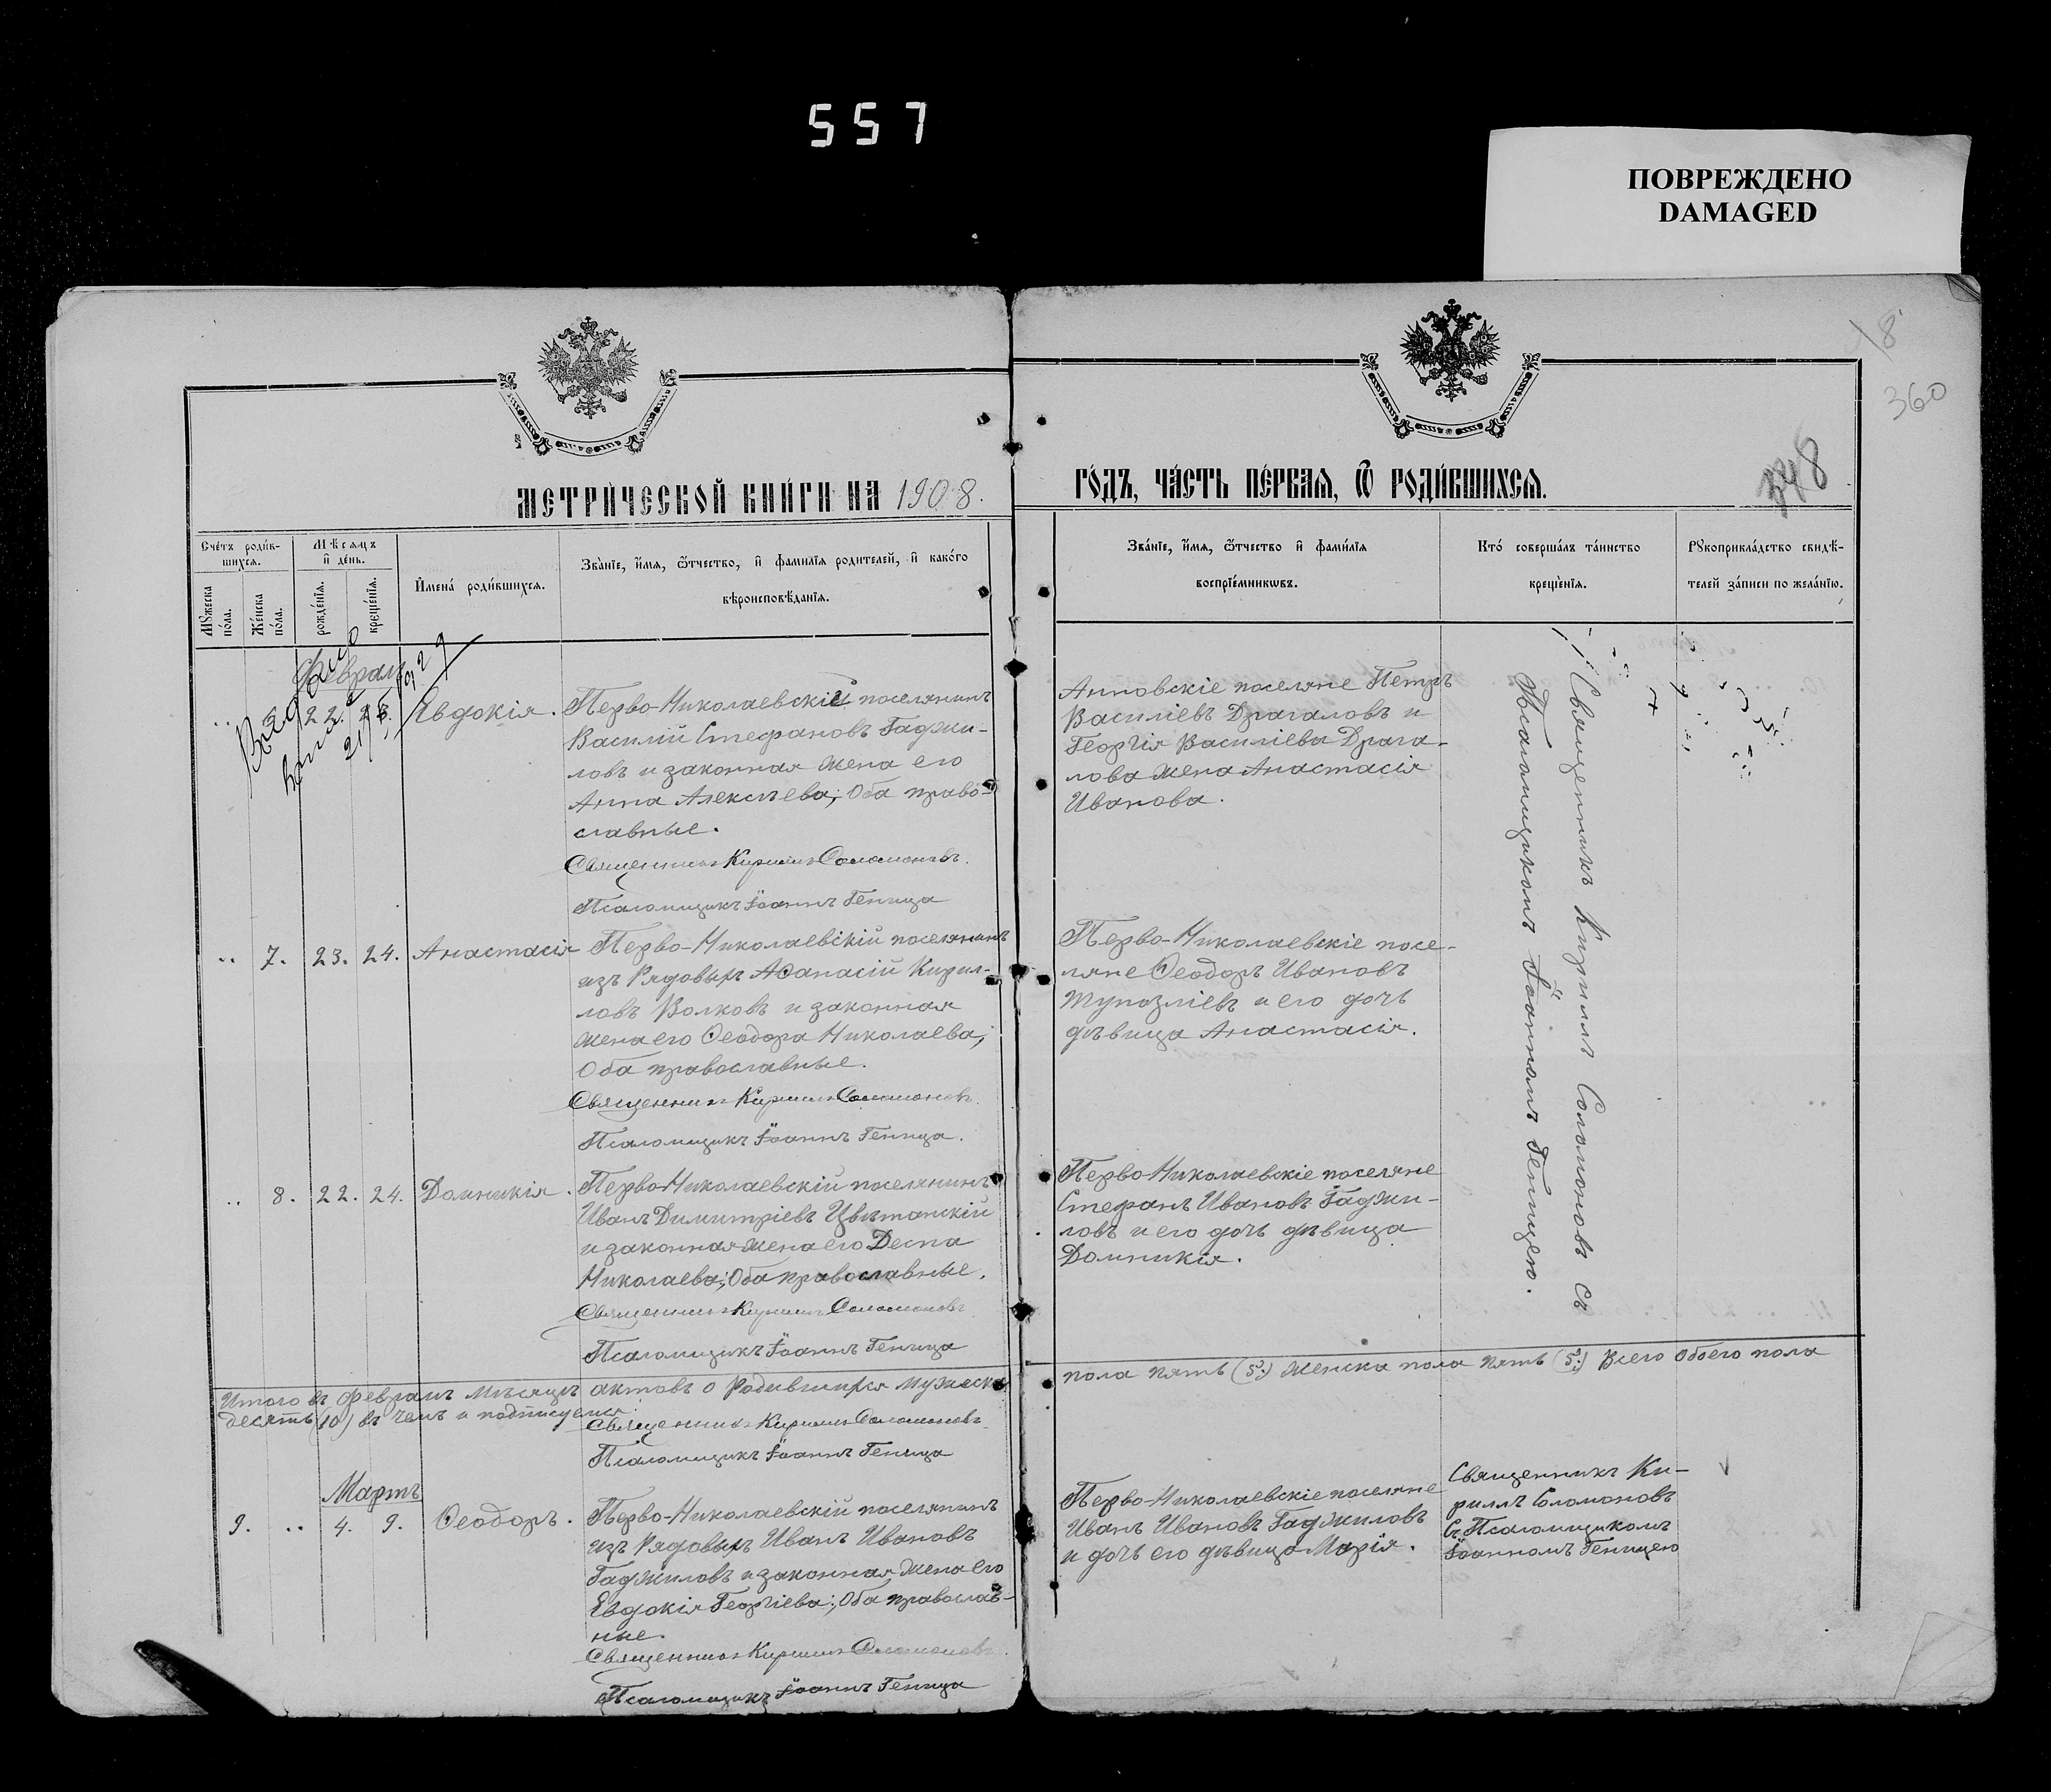 557
ПОВРЕЖДЕНО
DAMAGED
18
360
348
МЕТРИ́ЧЕСКОЙ КНИ́ГИ НА 1908.
ГО́ДЪ, ЧА́СТЬ ПЕ́РВАЯ, Ѽ РОДИ́ВШИХСЯ.
Сче́тъ роди́в-
шихся.
Мꙋжеска по́ла.
Же́нска по́ла.
Мѣ́сяцъ
и҆ де́нь.
рожде́нїя.
креще́нїя.
И҆мена̀ роди́вшихся.
Зва́нїе, и҆́мя, ѻ҆́тчество, и҆ фами́лїя роди́телей, и҆ како́го
вѣроисповѣ́данїя.
Зва́нїе, и҆́мя, ѻ҆́тчество и҆ фами́лїя
воспрїе́мникѡвъ.
Кто̀ соверша́лъ та́инство
креще́нїя.
Рꙋкоприкла́дство свидѣ́-
телей за́писи по жела́нїю.
Февраль
22.
Евдокія.
Перво-Николаевскіе поселянинъ
Василій Стефановъ Гаджи-
ловъ и законная жена его
Анна Алексѣева; Оба право-
славные.
Священникъ Кириллъ Соломоновъ.
Псаломщикъ Іоаннъ Геница
Анновскіе поселяне Петръ
Василіевъ Драгаловъ и
Георгія Василіева Драга-
лова жена Анастасія
Иванова.
Священникъ Кириллъ Соломоновъ съ
Псаломщикомъ Іоанномъ Геницею.
7. 23. 24. Анастасія
Перво-Николаевскій поселянинъ
изъ Рядовыхъ Аѳанасій Кирил-
ловъ Волковъ и законная
жена его Ѳеодора Николаева;
Оба православные.
Священникъ Кириллъ Соломоновъ.
Псаломщикъ Іоаннъ Геница.
Перво-Николаевскіе посе-
ляне Ѳеодоръ Ивановъ
Тупозліевъ и его дочь
дѣвица Анастасія.
8. 22. 24. Домникія.
Перво-Николаевскій поселянинъ
Иванъ Димитріевъ Цвѣтанскій
и законная жена его Деспа
Николаева; Оба православные.
Священникъ Кириллъ Соломоновъ
Псаломщикъ Іоаннъ Геница
Перво-Николаевскіе поселяне
Стефанъ Ивановъ Гаджи-
ловъ и его дочь дѣвица
Домникія.
Итого въ февралѣ мѣсяцѣ актовъ о Родившихся мужеска пола пять (5;) женска пола пять (5;) Всего Обоего пола
десять (10) въ чемъ и подписуемся:
Священникъ Кириллъ Соломоновъ
Псаломщикъ Іоаннъ Геница
Мартъ
9. 4. 9. Ѳеодоръ.
Перво-Николаевскій поселянинъ
изъ Рядовыхъ Иванъ Ивановъ
Гаджиловъ и законная жена его
Евдокія Георгіева; Оба православ-
ные.
Священникъ Кириллъ Соломоновъ.
Псаломщикъ Іоаннъ Геница
Перво-Николаевскіе поселяне
Иванъ Ивановъ Гаджиловъ
и дочь его дѣвица Марія.
Священникъ Ки-
риллъ Соломоновъ
Съ Псаломщикомъ
Іоанномъ Геницею